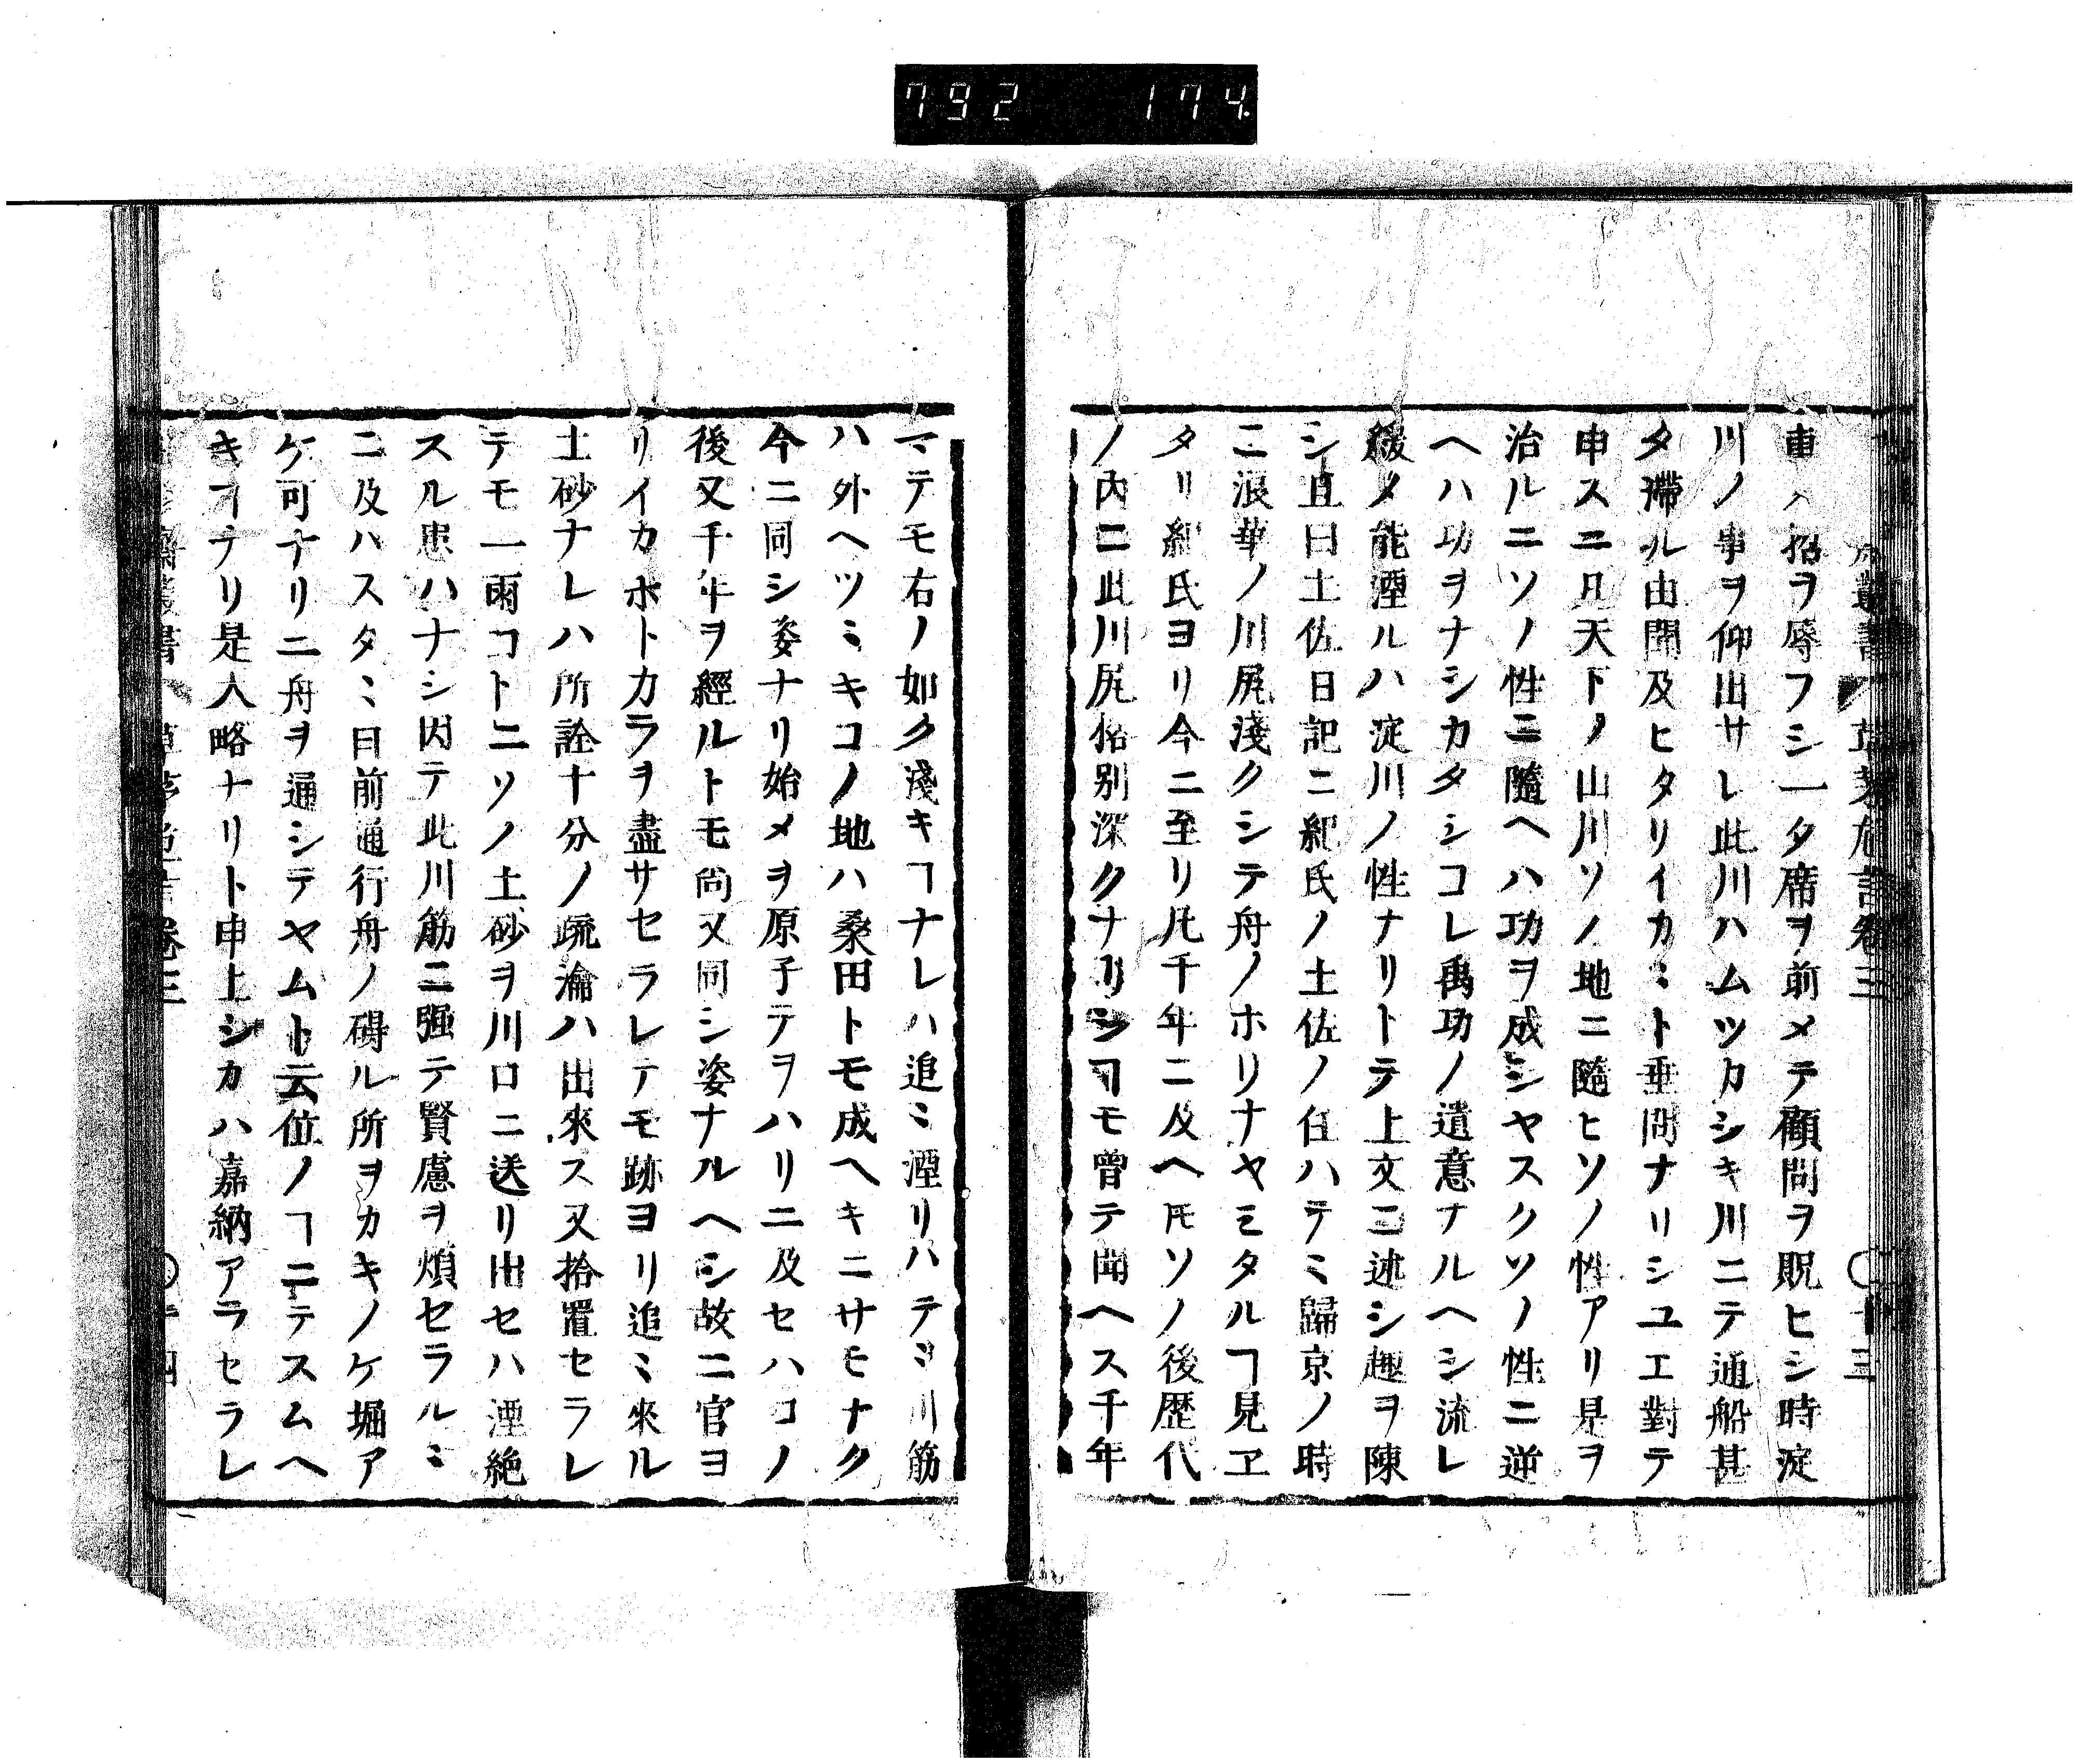 792 174
車ノ招ヲ辱フシ一夕席ヲ前メテ顧問ヲ貺ヒシ時淀
川ノ事ヲ仰出サレ此川ハムツカシキ川ニテ通船甚
タ滯ル由聞及ヒタリイカヽト垂問ナリシユエ對テ
申スニ凡天下ノ山川ソノ地ニ隨ヒソノ性アリ是ヲ
治ルニソノ性ニ隨ヘハ功ヲ成シヤスクソノ性ニ逆
ヘハ功ヲナシカタシコレ禹功ノ遺意ナルヘシ流レ
緩メ能湮ルハ淀川ノ性ナリトテ上文ニ述シ趣ヲ陳
シ且曰土佐日記ニ紀氏ノ土佐ノ任ハテヽ歸京ノ時
ニ浪華ノ川尻淺クシテ舟ノホリナヤミタルヿ見ヱ
タリ紀氏ヨリ今ニ至リ凡千年ニ及ヘ𪜈ソノ後歴代
ノ內ニ此川尻格別深クナリシヿモ曾テ聞ヘス千年
マテモ右ノ如ク淺キヿナレハ追ミ湮リハテミ川筋
ハ外ヘツミキコノ地ハ桑田トモ成ヘキニサモナク
今ニ同シ姿ナリ始メヲ原子テヲハリニ及セハコノ
後又千年ヲ經ルトモ尙又同シ姿ナルヘシ故ニ官ヨ
リイカホトカラヲ盡サセラレテモ跡ヨリ追ミ來ル
土砂ナレハ所詮十分ノ疏瀹ハ出來ス又拾置セラレ
テモ一雨コトニソノ土砂ヲ川口ニ送リ出セハ湮絶
スル患ハナシ因テ此川筋ニ强テ賢慮ヲ煩セラルミ
ニ及ハスタミ目前通行舟ノ碍ル所ヲカキノケ堀ア
ケ可ナリニ舟ヲ通シテヤムト云位ノヿニテスムヘ
キヿナリ是大略ナリト申上シカハ嘉納アラセラレ
卷三